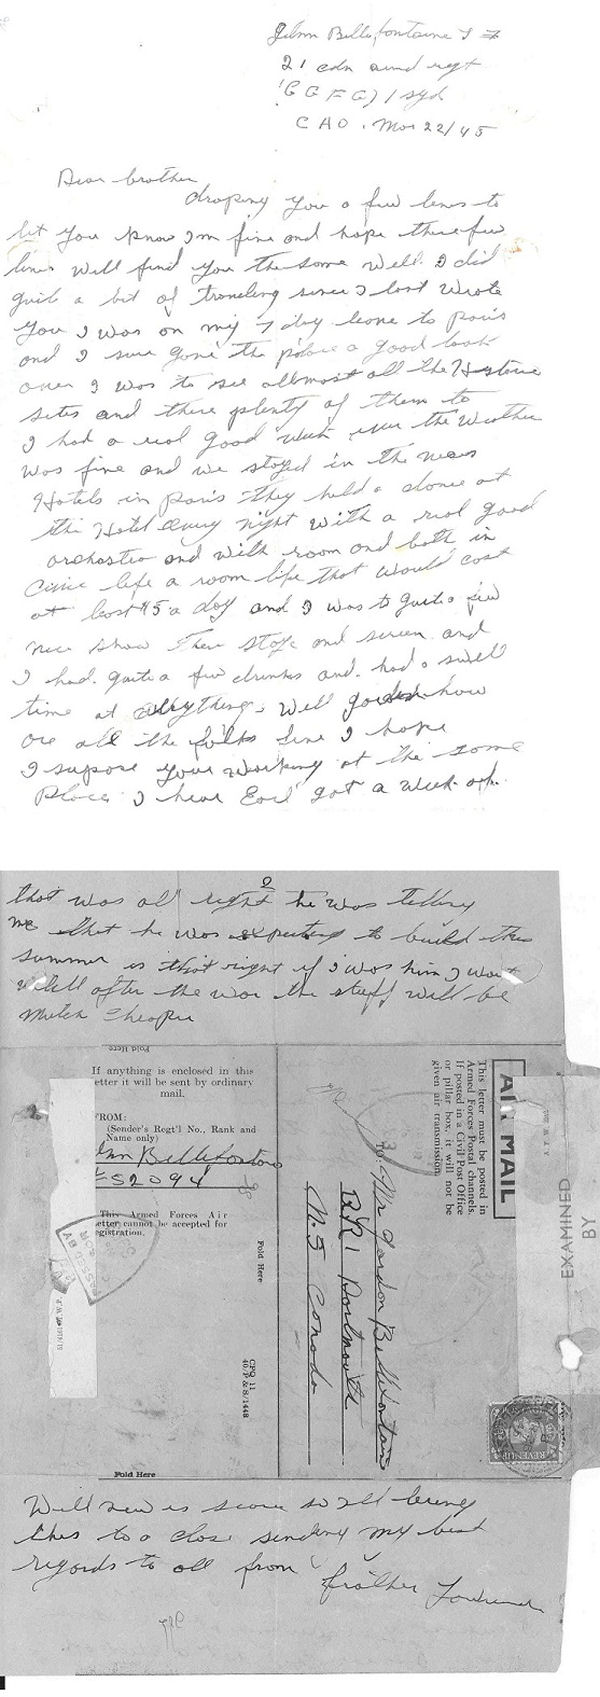 Bellefontaine
21 cdn armd regt
(GGFG) 1 sqd
CAO. Mar 22/45
Dear brother
droping you a few lines to
let you know I'm fine and hope these few
lines will find you the same well. I did
quite a bit of traveling since I last wrote
you I was on my 7 day leave to Paris
and I sure gave the place a good look
over I was to see allmost all the Historic
sites and there plenty of them to
I had a real good week even the weather
was fine and we stayed in the
Hotels in Paris they held a dance at
the Hotel every night with a real good
orchestra and with room and bath in
civie life a room like that would cost
at least $5 a day and I was to quite a few
nice show there stage and screen and
I had quite a few drinks and had a swell
time at everything. Well gordon how
are all the folks fine I hope
I supose your working at the same
place I hear Earl got a week off
2
that was all right he was telling
me that he was expecting to build this
summer is that right if I was him I wait
untill after the war the stuff will be
mutch cheaper
Fold Here
If anything is enclosed in this
letter it will be sent by ordinary
mail.
FROM:
(Sender's Regt'l No., Rank and
Name only)
Bellefontaine
F52094
This Armed Forces Air
letter cannot be accepted for
registration.
Fold Here
CPO 11
40/P & S/1448
Fold Here
AIR MAIL
This letter must be posted in
Armed Forces Postal channels.
If posted in a Civil Post Office
or pillar box, it will not be
given air transmission.
To Mr Gordon Bellefontaine
RR1 Dartmouth
N.S Canada
EXAMINED
BY
REVENUE
Well news is scarce so I'll bring
this to a close sending my best
regards to all from
brother